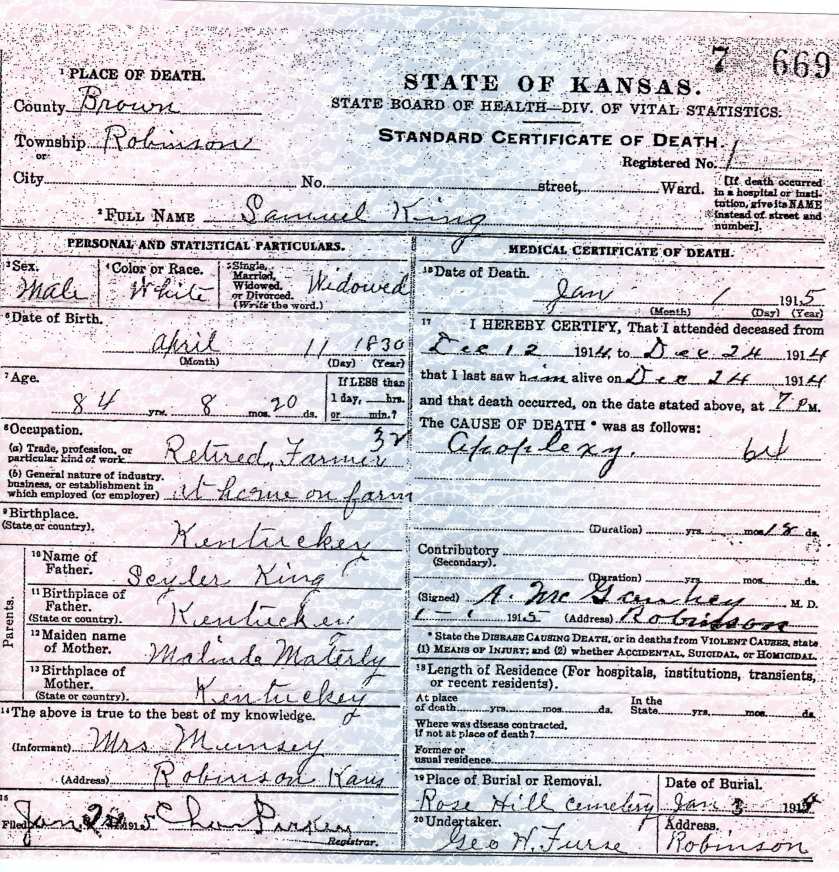 7 669
1 PLACE OF DEATH.
County Brown
Township Robinson
or
City No. street, Ward.
STATE OF KANSAS.
STATE BOARD OF HEALTH—DIV. OF VITAL STATISTICS.
STANDARD CERTIFICATE OF DEATH.
Registered No. 1
[If death occurred in a hospital or institution, give its NAME instead of street and number].
2 FULL NAME Samuel King
PERSONAL AND STATISTICAL PARTICULARS.
3 Sex. Male
4 Color or Race. White
5 Single, Married, Widowed, or Divorced. (Write the word.) Widowed
6 Date of Birth.
April 11 1830
(Month) (Day) (Year)
7 Age.
84 yrs. 8 mos. 20 ds.
If LESS than 1 day, hrs. or min.?
8 Occupation.
(a) Trade, profession, or particular kind of work Retired Farmer 32
(b) General nature of industry, business, or establishment in which employed (or employer) at home on farm
9 Birthplace.
(State or country). Kentuckey
Parents.
10 Name of Father. Seyler King
11 Birthplace of Father. (State or country). Kentuckey
12 Maiden name of Mother. Malinda Materly
13 Birthplace of Mother. (State or country). Kentuckey
14 The above is true to the best of my knowledge.
(Informant) Mrs Mumsey
(Address) Robinson Kans
15
Filed Jan 2 1915 Registrar.
MEDICAL CERTIFICATE OF DEATH.
16 Date of Death.
Jan 1 1915
(Month) (Day) (Year)
17 I HEREBY CERTIFY, That I attended deceased from
Dec 12 1914, to Dec 24 1914
that I last saw him alive on Dec 24 1914
and that death occurred, on the date stated above, at 7 P M.
The CAUSE OF DEATH * was as follows:
Apoplexy. 64
(Duration) yrs. mos. 18 ds.
Contributory
(Secondary).
(Duration) yrs. mos. ds.
(Signed) M. D.
1-1 1915 (Address) Robinson
* State the DISEASE CAUSING DEATH, or in deaths from VIOLENT CAUSES, state
(1) MEANS OF INJURY; and (2) whether ACCIDENTAL, SUICIDAL, or HOMICIDAL.
18 Length of Residence (For hospitals, institutions, transients, or recent residents).
At place of death yrs. mos. ds. In the State yrs. mos. ds.
Where was disease contracted, if not at place of death?
Former or usual residence
19 Place of Burial or Removal. Date of Burial.
Rose Hill cemetery Jan 3 191
20 Undertaker. Address.
Geo W. Furse Robinson